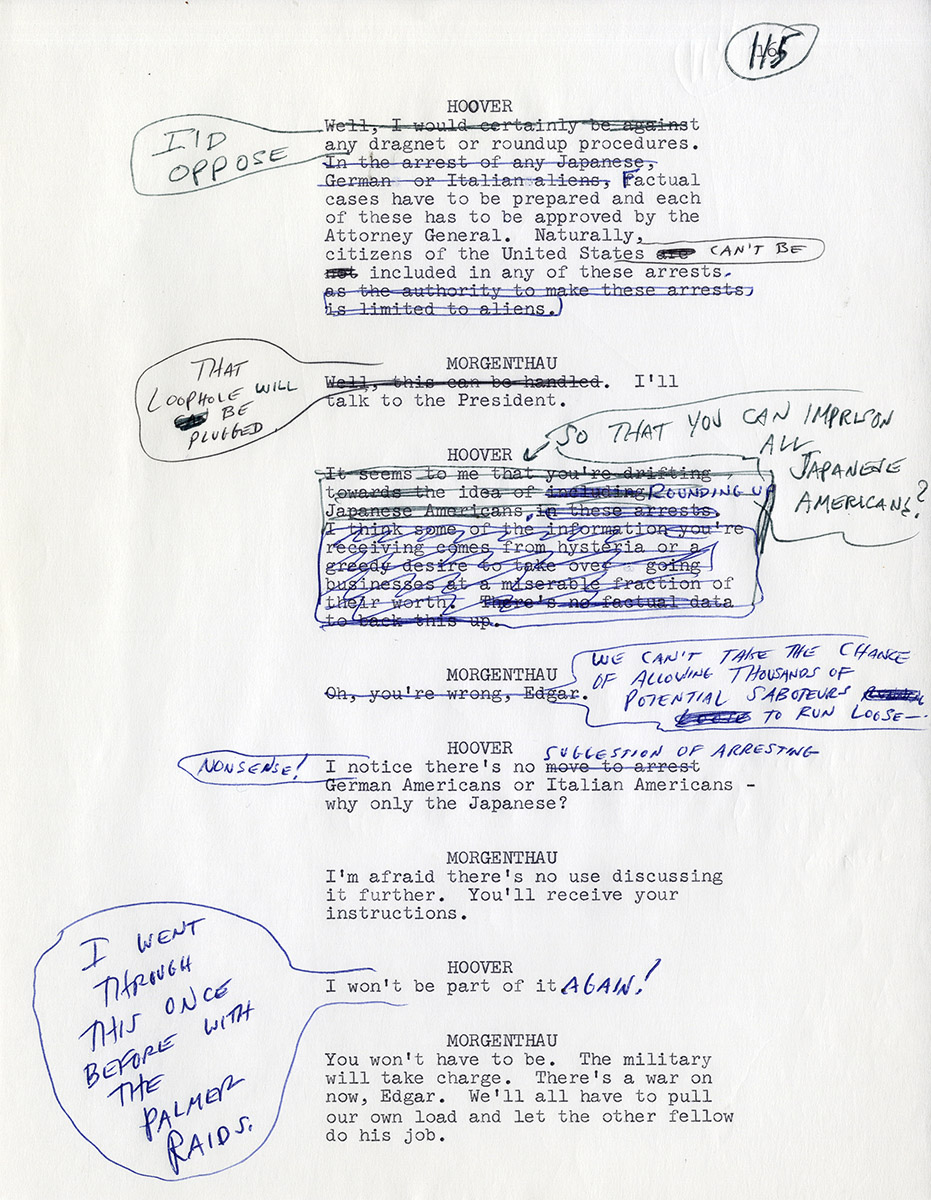 115
HOOVER
I'D
OPPOSE
Well, I would certainly be against
any dragnet or roundup procedures.
In the arrest of any Japanese,
German or Italian aliens, Factual
cases have to be prepared and each
of these has to be approved by the
Attorney General. Naturally,
citizens of the United States are CAN'T BE
not included in any of these arrests.
as the authority to make these arrests,
is limited to aliens.
MORGENTHAU
THAT
LOOPHOLE WILL
BE
PLUGGED
Well, this can be handled. I'll
talk to the President.
HOOVER
SO THAT YOU CAN IMPRISON
ALL
JAPANESE
AMERICANS?
It seems to me that you're drifting
towards the idea of including ROUNDING UP
Japanese Americans in these arrests.
I think some of the information you're
receiving comes from hysteria or a
greedy desire to take over going
businesses at a miserable fraction of
their worth. There's no factual data
to back this up.
MORGENTHAU
Oh, you're wrong, Edgar.
WE CAN'T TAKE THE CHANCE
OF ALLOWING THOUSANDS OF
POTENTIAL SABOTEURS
LOOSE TO RUN LOOSE—
HOOVER
NONSENSE!
SUGGESTION OF ARRESTING
I notice there's no move to arrest
German Americans or Italian Americans -
why only the Japanese?
MORGENTHAU
I'm afraid there's no use discussing
it further. You'll receive your
instructions.
I WENT
THROUGH
THIS ONCE
BEFORE WITH
THE
PALMER
RAIDS.
HOOVER
I won't be part of it AGAIN!
MORGENTHAU
You won't have to be. The military
will take charge. There's a war on
now, Edgar. We'll all have to pull
our own load and let the other fellow
do his job.